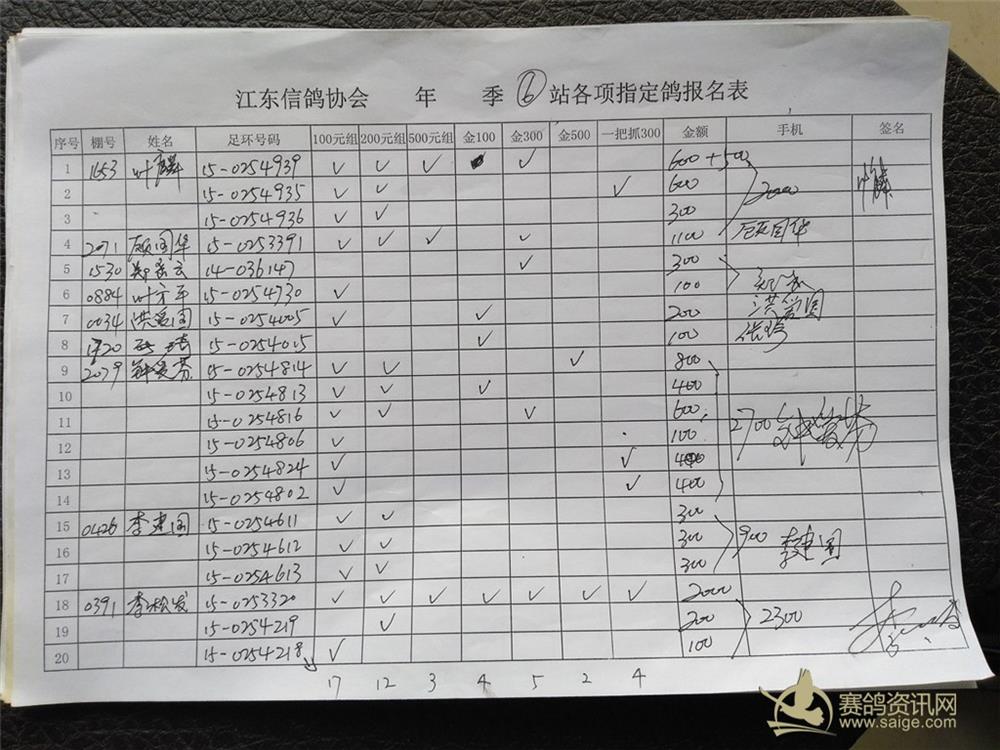 江东信鸽协会 年 季 ⑥ 站各项指定鸽报名表
序号 棚号 姓名 足环号码 100元组 200元组 500元组 金100 金300 金500 一把抓300 金额 手机 签名
1 1653 叶麟 15-0254939 ✓ ✓ ✓ ✓ 600+500
2 15-0254935 ✓ ✓ ✓ 600 2000
3 15-0254936 ✓ ✓ 300
4 2071 顾国华 15-0253391 ✓ ✓ ✓ ✓ 1100 顾国华
5 1530 14-036147 ✓ 300
6 0884 叶方平 15-0254730 ✓ 100
7 0034 洪爱国 15-0254005 ✓ ✓ 200 洪爱国
8 15-0254015 ✓ 100
9 2079 15-0254814 ✓ ✓ ✓ 800
10 15-0254813 ✓ ✓ ✓ 400
11 15-0254816 ✓ ✓ ✓ 600 2700
12 15-0254806 ✓ 100
13 15-0254824 ✓ ✓ 400
14 15-0254802 ✓ ✓ 400
15 0426 李建国 15-0254611 ✓ ✓ 300
16 15-0254612 ✓ ✓ 300 900 李建国
17 15-0254613 ✓ ✓ 300
18 0391 李松发 15-0253320 ✓ ✓ ✓ ✓ ✓ ✓ ✓ 2000
19 15-0254219 ✓ 200 2300
20 15-0254218 ✓ 100
17 12 3 4 5 2 4
赛鸽资讯网
www.saige.com